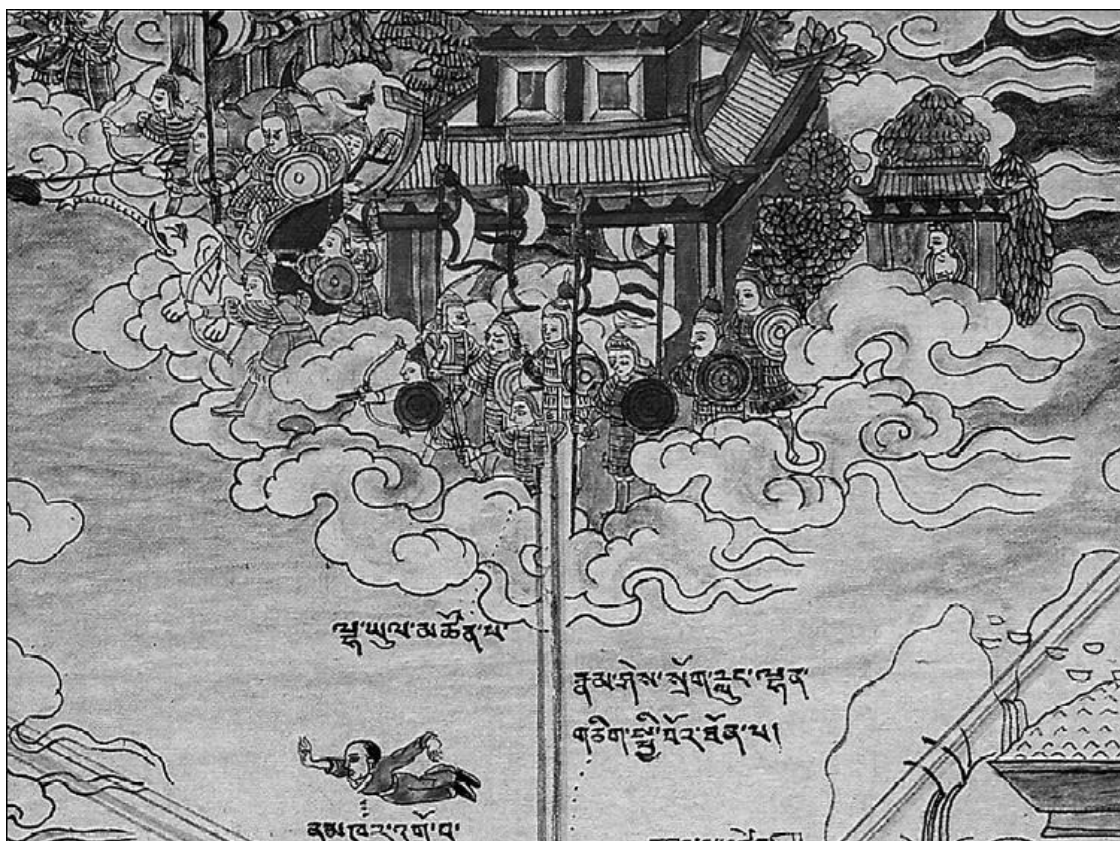 ལྷ་ཡུལ་མཚོན་པ་
རྣམ་ཤེས་སྲོག་རླུང་ལྷན་
གཅིག་སྤྱི་བོར་ཐོན་པ།
ནམ་ཁར་འགྲོ་བ་